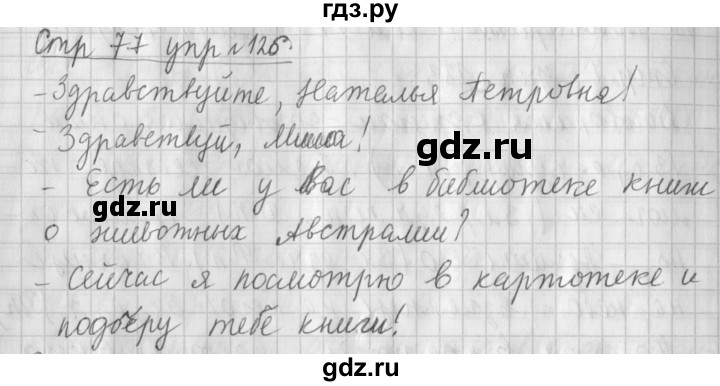 гдз.ру
Стр 77 упр №126.
- Здравствуйте, Наталья Петровна!
- Здравствуй, Миша!
gdz.ru
- Есть ли у Вас в библиотеке книги
gdz.ru
о животных Австралии?
- Сейчас я посмотрю в картотеке и
подберу тебе книги!
gdz.ru
gdz.ru